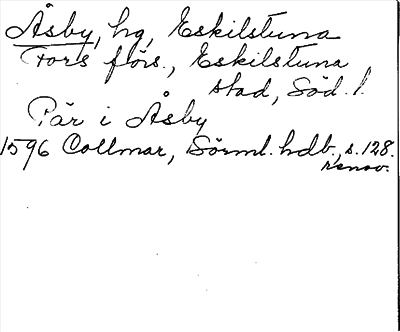 Åsby, hg, Eskilstuna
Fors förs., Eskilstuna
stad, Söd. l.
Pär i Åsby
1596 Collmar, Sörml. hdb., s. 128.
renov.